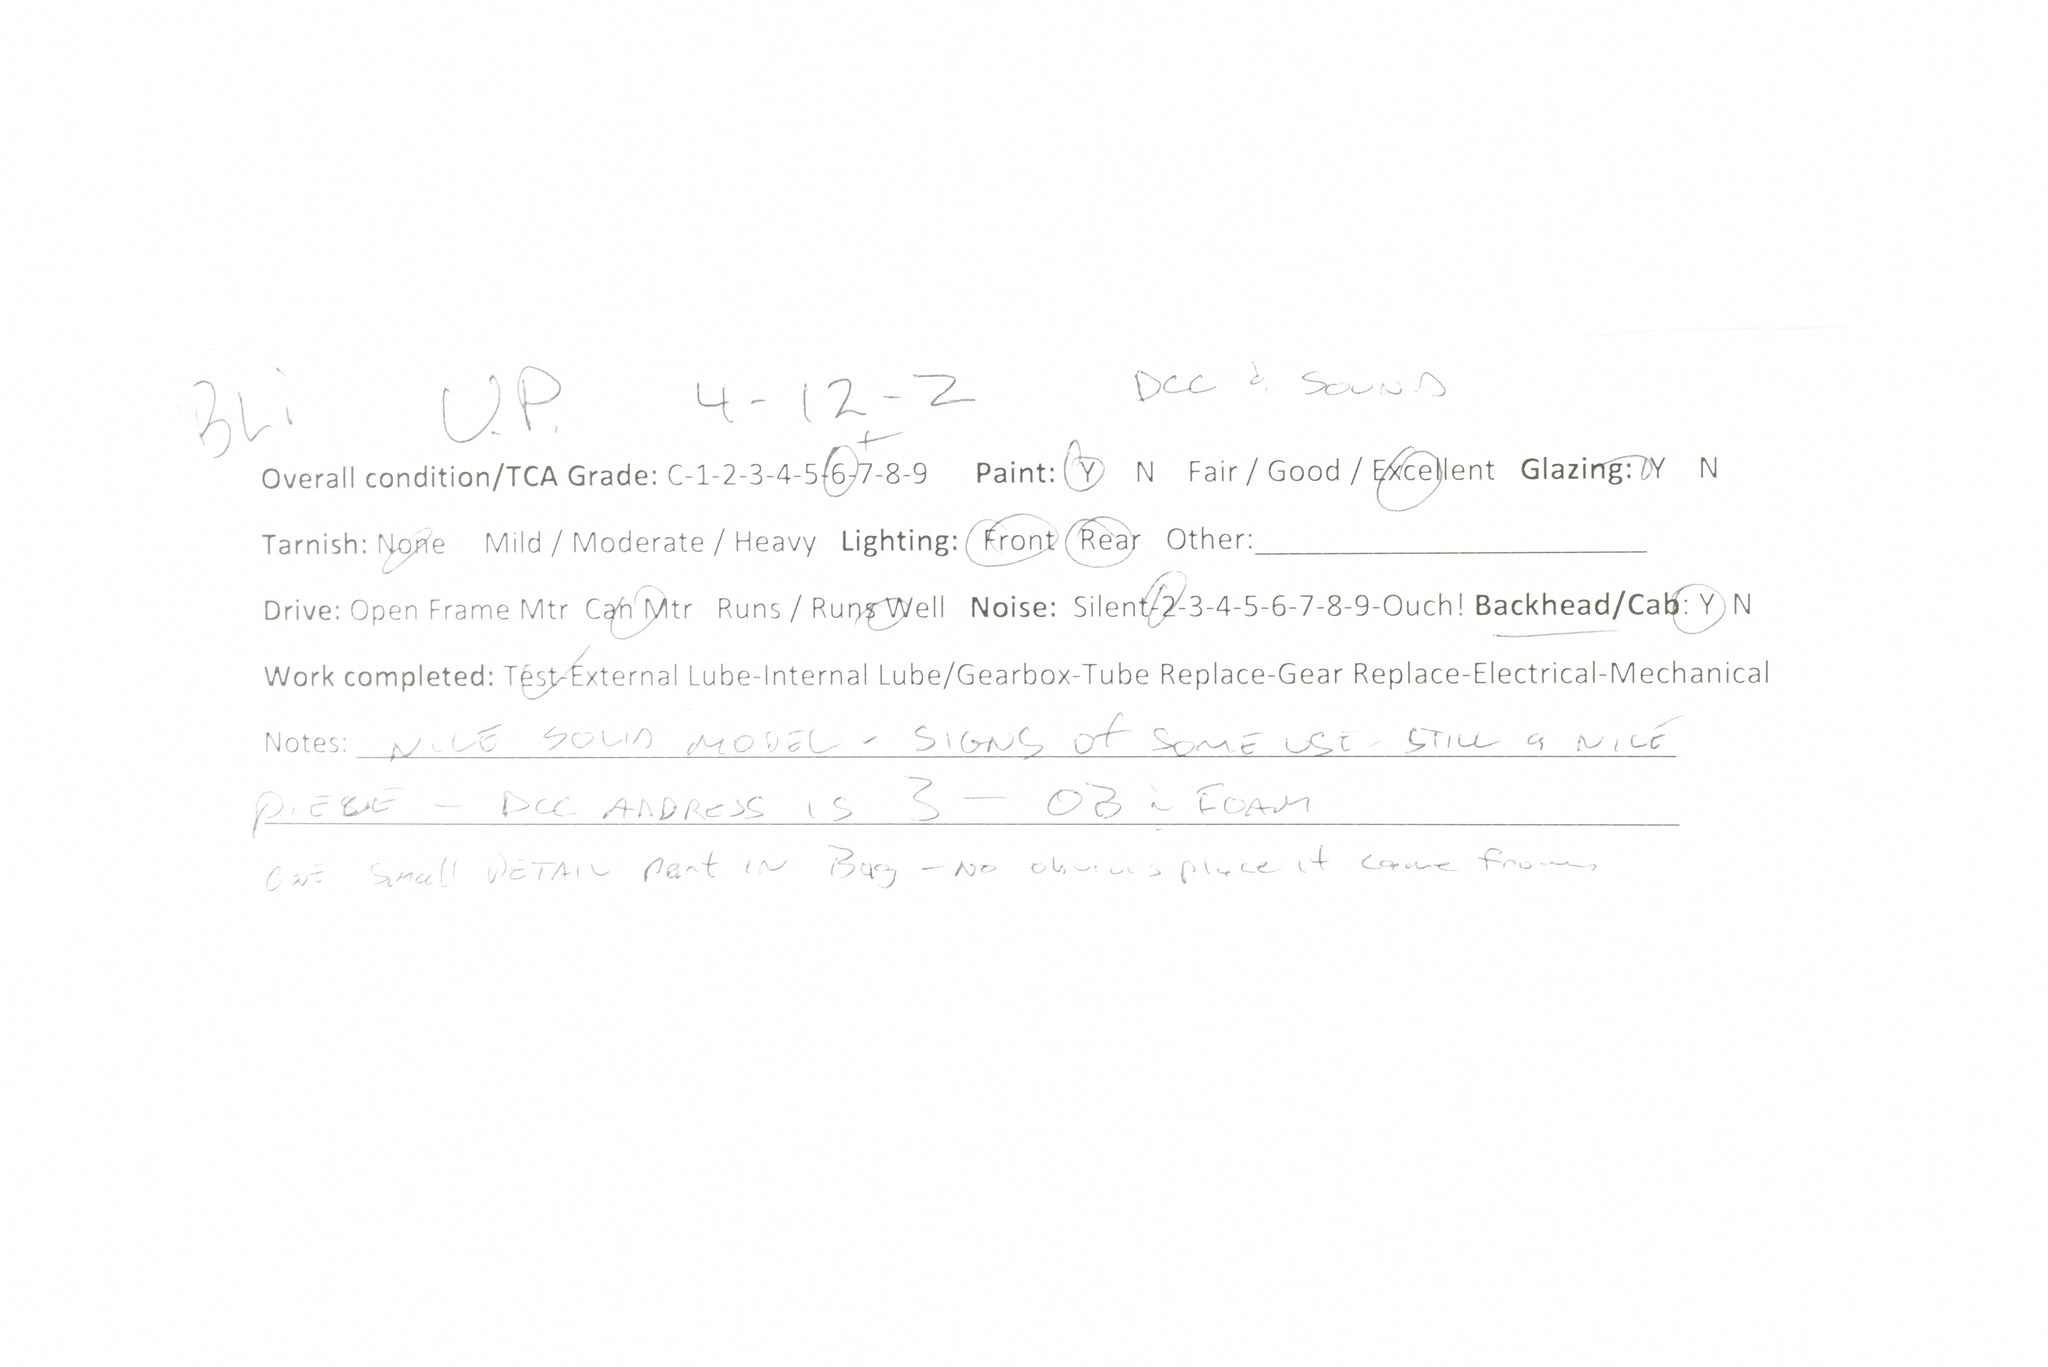 BLi U.P. 4-12-2 DCC & SOUND
+
Overall condition/TCA Grade: C-1-2-3-4-5-6-7-8-9 Paint: Y N Fair / Good / Excellent Glazing: Y N
Tarnish: None Mild / Moderate / Heavy Lighting: Front Rear Other:
Drive: Open Frame Mtr Can Mtr Runs / Runs Well Noise: Silent-2-3-4-5-6-7-8-9-Ouch! Backhead/Cab: Y N
Work completed: Test-External Lube-Internal Lube/Gearbox-Tube Replace-Gear Replace-Electrical-Mechanical
Notes: NICE SOLID MODEL - SIGNS of SOME USE - STILL a NICE
PIECE - DCC ADDRESS IS 3 - OB & FOAM
ONE small DETAIL part IN Bag - No obvious place it came from